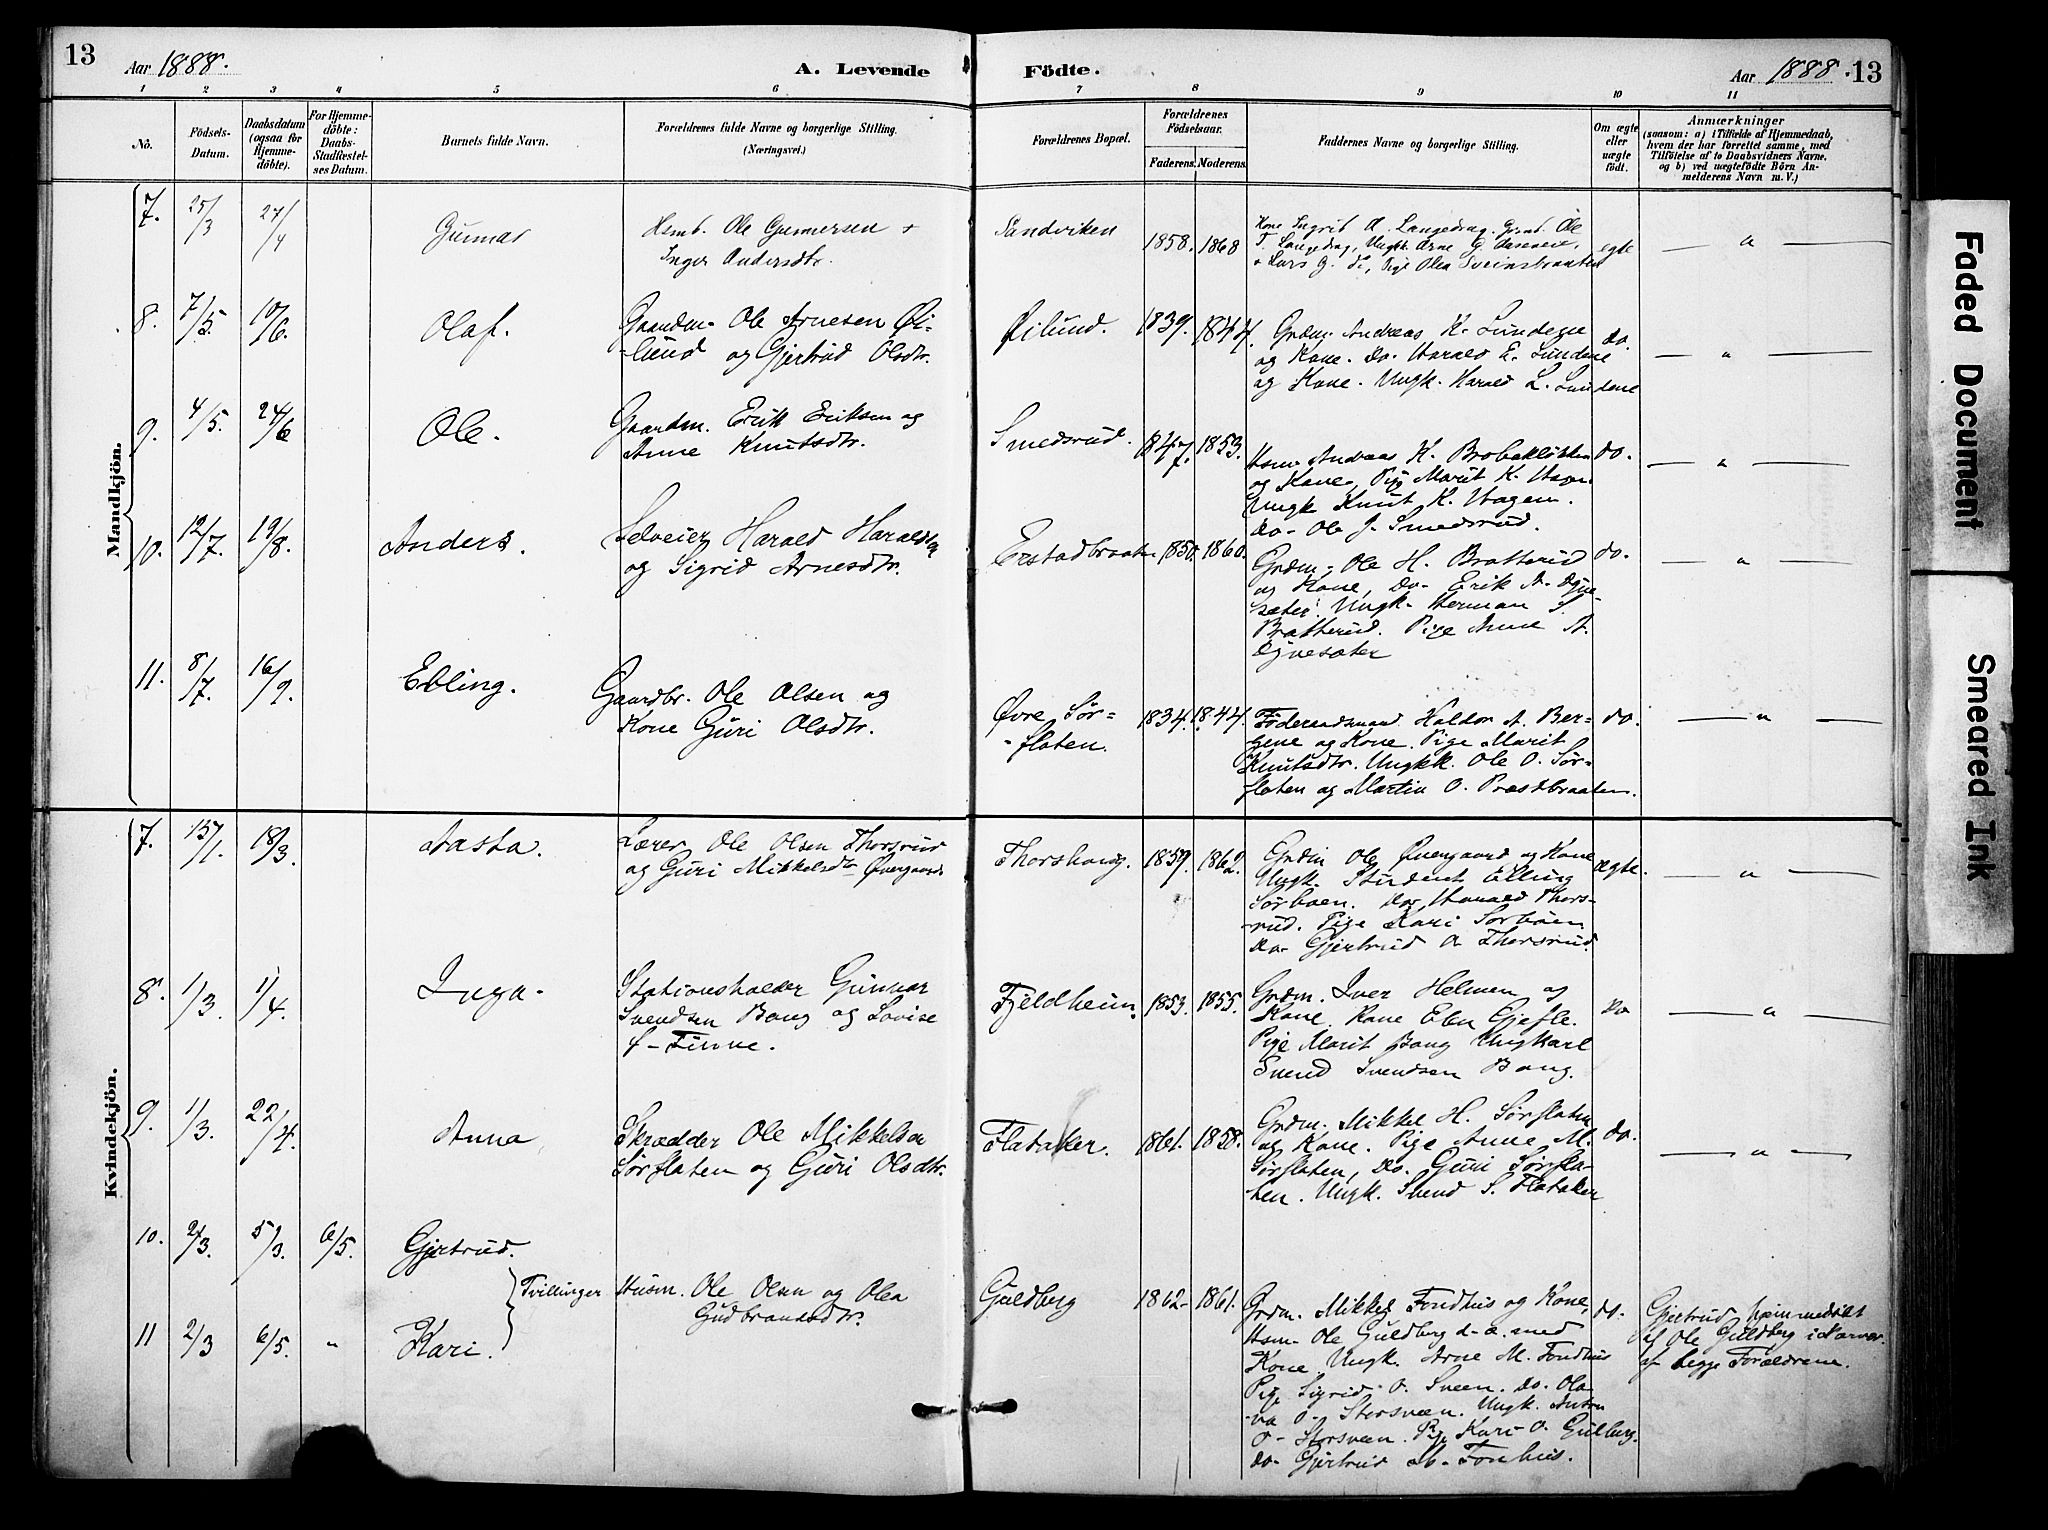 13
Aar 1888.
A. Levende
Födte.
Aar 1888.
13
1 2 3 4 5 6 7 8 9 10 11
No.
Födsels-
Datum.
Daabsdatum
(ogsaa for
Hjemme-
döbte).
For Hjemme-
döbte:
Daabs-
Stadfæstel-
ses Datum.
Barnets fulde Navn.
Forældrenes fulde Navne og borgerlige Stilling.
(Næringsvei.)
Forældrenes Bopæl.
Forældrenes
Födselsaar.
Faderens. Moderens.
Faddernes Navne og borgerlige Stilling.
Om ægte
eller
uægte
födt.
Anmærkninger
(saasom: a) i Tilfælde af Hjemmedaab,
hvem der har forrettet samme, med
Tilföielse af to Daabsvidners Navne,
og b) ved uægtefödte Börn An-
melderens Navn m. V.)
Mandkjön.
7. 25/3 27/4 Gunnar
Hsmb. Ole Gunnersen +
Inger Andersdtr.
Sandviken
1858. 1868
Kone Ingrid A. Langedrag, Grmb. Ole
T. Langedrag, Ungk. Arne G.
+ Lars G. do, Pige Olea Sveinsbraaten
egte
— " —
8. 7/5 10/6. Olaf.
Gaardm. Ole Arnesen Øi-
lund og Gjertrud Olsdtr.
Øilund.
1839. 1844.
Grdm. Andreas K. Lundene
og Kone. Do. Harald E. Lundene
og Kone. Ungk. Harald L. Lundene
do.
— " —
9. 4/5. 24/6 Ole.
Gaardm. Erik Eriksen og
Anne Knutsdtr.
Smedsrud.
1847. 1853.
Hsm. Andreas K. Brobakløkken
og Kone, Pige Marit K. Hagen
Ungk Knut K. Hagen.
do. Ole J. Smedsrud.
do.
— " —
10. 12/7. 19/8. Anders.
Selveier Harald Haraldsen
og Sigrid Arnesdtr.
Erstadbraaten
1850. 1860.
Grdm. Ole H. Bratterud
og Kone, Do. Erik A. Ojue-
sæter. Ungk. Herman S.
Bratterud. Pige Anne A.
Ojuesæter
do.
— " —
11. 8/7. 16/9. Ebling.
Gaardbr. Ole Olsen og
Kone Guri Olsdtr.
Øvre Sør-
flaten.
1834. 1844.
Föderaadsmand Haldor A. Ber-
gene og Kone. Pige Marit
Knutsdtr. Ungkk. Ole O. Sør-
flaten og Martin O. Præstbraaten.
do.
— " —
Kvindekjön.
7. 15/1. 18/3. Aasta.
Lærer Ole Olsen Thorsrud
og Guri Mikkelsdtr Øvergaard
Thorshaug.
1859. 1862.
Grdm Ole Øvergaard og Kone
Ungk. Student Elling
Sørbøen. do. Harald Thors-
rud. Pige Kari Sørbøen
do. Gjertrud O. Thorsrud.
ægte.
— " —
8. 1/3. 1/4. Inga.
Stationsholder Gunnar
Svendsen Bang og Lovise
f. Finne.
Fjeldheim.
1853. 1855.
Grdm. Iver Helmen og
Kone. Kone Ebn Gjefle.
Pige Marit Bang Ungkarl
Svend Svendsen Bang.
do
— " —
9. 1/3. 22/4. Anna
Skrædder Ole Mikkelsen
Sørflaten og Guri Olsdtr.
Flataker.
1861. 1858.
Grdm. Mikkel H. Sørflaten
og Kone. Pige Anne M.
Sørflaten, do. Guri Sørfla-
ten. Ungk. Svend S. Flataker
do.
— " —
10. 2/3. 5/3. 6/5. Gjertrud.
Tvillinger
Husm. Ole Olsen og Olea
Gudbrandsdtr.
Guldberg
1862. 1861.
11 2/3 6/5. " Kari.
Grdm. Mikkel Fondhus og Kone,
Hsm. Ole Guldberg d. æ. med
Kone. Ungk. Arne M. Fondhus
Pige Sigrid O. Sveen. do. Ola-
va O. Storsveen. Ungk. Anton
O. Storsveen. Pige Kari O. Gulberg.
do. Gjertrud M. Fonhus.
do.
Gjertrud hjemmedøbt
af Ole Guldberg i Nærvær
af begge Forældrene.
Faded Document
Smeared Ink